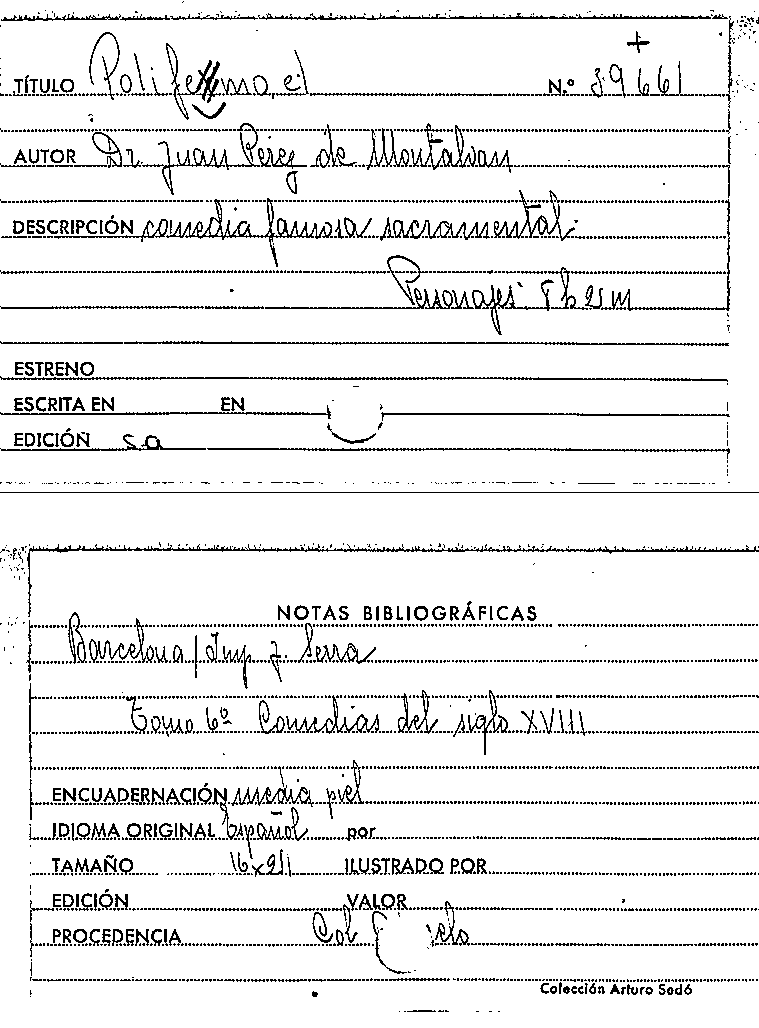 TÍTULO Polifemo, el N.º 39661
+
AUTOR Dr. Juan Pérez de Montalvan
DESCRIPCIÓN comedia famosa sacramental.
Personajes:
ESTRENO
ESCRITA EN EN
EDICIÓN S.a
NOTAS BIBLIOGRÁFICAS
Barcelona / Imp. J. Serra
Tomo 6º Comedias del siglo XVIII
ENCUADERNACIÓN media piel
IDIOMA ORIGINAL Español por
TAMAÑO 16x21 ILUSTRADO POR
EDICIÓN VALOR
PROCEDENCIA Col
Colección Arturo Sedó